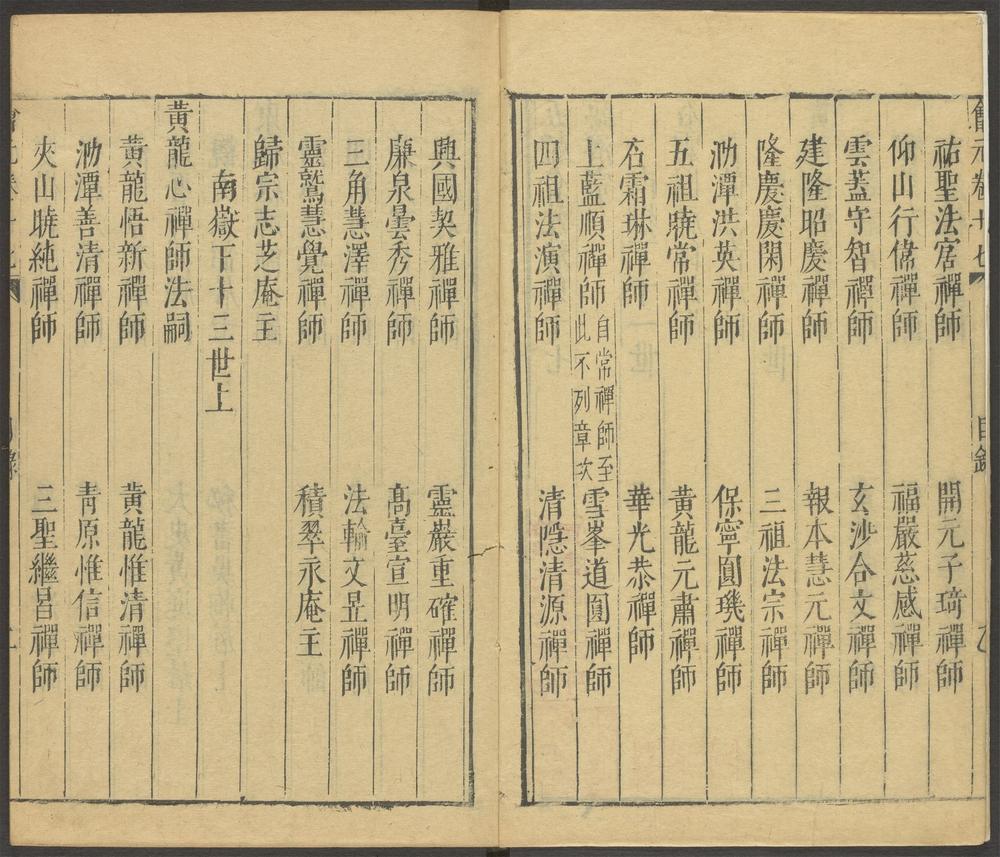 祐聖法𡧯禪師　開元子琦禪師
仰山行偉禪師　福嚴慈感禪師
雲蓋守智禪師　玄沙合文禪師
建隆昭慶禪師　報本慧元禪師
隆慶慶閑禪師　三祖法宗禪師
泐潭洪英禪師　保寧圓璣禪師
五祖曉常禪師　黃龍元肅禪師
石霜琳禪師　華光恭禪師
上藍順禪師　自常禪師至此不列章次　雪峯道圓禪師
四祖法演禪師　清隱清源禪師
興國契雅禪師　靈巖重確禪師
廉泉曇秀禪師　高臺宣明禪師
三角慧澤禪師　法輪文昱禪師
靈鷲慧覺禪師　積翠永庵主
歸宗志芝庵主
南嶽下十三世上
黃龍心禪師法嗣
黃龍悟新禪師　黃龍惟清禪師
泐潭善清禪師　青原惟信禪師
夾山曉純禪師　三聖繼昌禪師